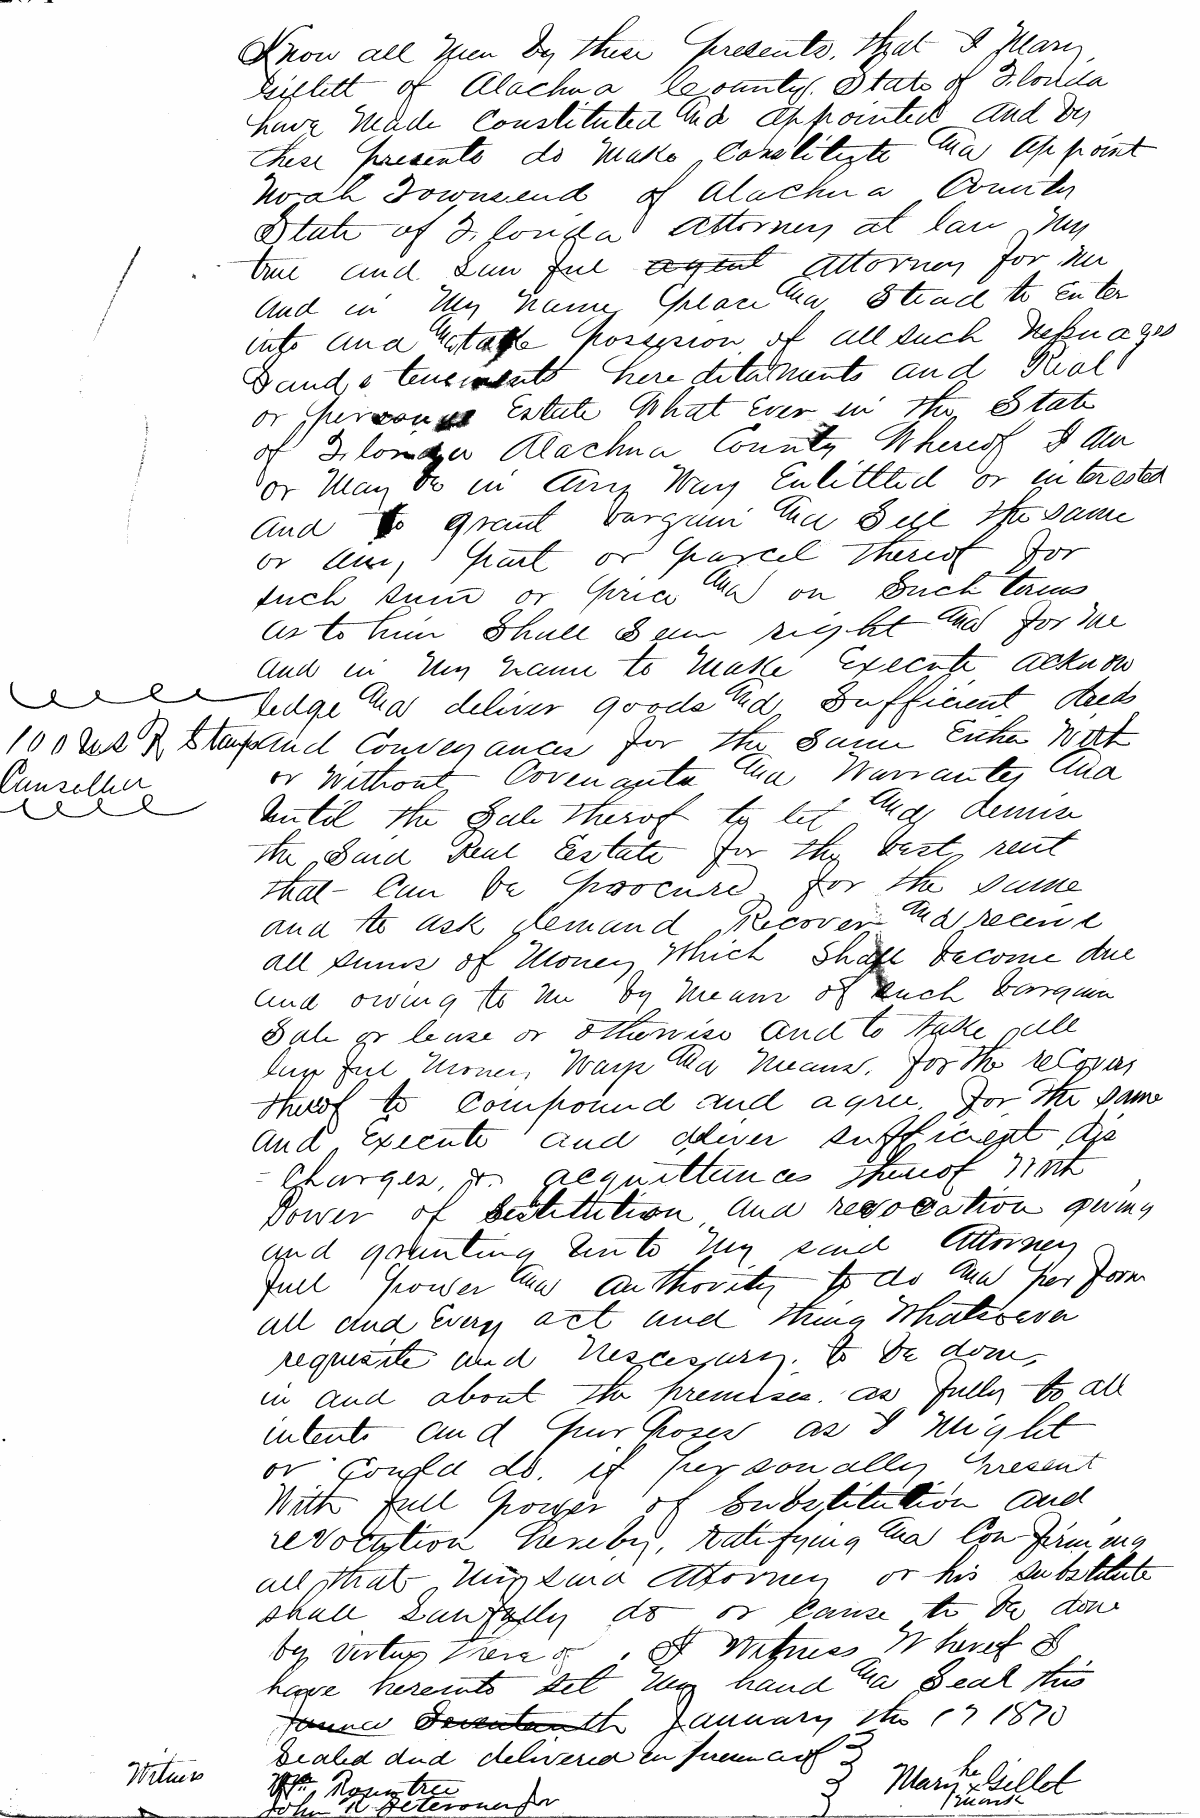 Know all Men by these presents, that I Mary
Gillett of Alachua County, State of Florida
have Made Constituted And appointed and by
these presents do Make Constitute And appoint
Noah Townsend of Alachua County
State of Florida Attorney at law My
true and Lawful agent attorney for me
and in My Name place And Stead to Enter
into and take possession of all such
Lands tenements hereditaments and Real
or personal Estate What Ever in the State
of Florida Alachua County Whereof I am
or May be in Any Way Entittled or interested
and to grant bargain And Sell the same
or any part or parcel thereof for
such sum or price And on Such terms
as to him Shall Seem right And for Me
and in My Name to Make Execute acknow
ledge And deliver goods And Sufficient deeds
100 U S R Stamp
Cansellen
and Conveyances for the Same Either With
or Without Covenants And Warranty And
until the Sale therof to let And demise
the Said Real Estate for the best rent
that Can be procured for the same
and to ask demand Recover And receive
all sums of Money Which Shall become due
and owing to Me by Means of such bargain
Sale or lease or otherwise and to take all
lawful Money Ways And Means. for the recovery
therof to Compound and agree for the same
and Execute and deliver sufficient dis
- Charges, or acquittances thereof With
Power of Sustitution and revocation giving
and granting unto My said Attorney
full power And authority to do And perform
all and Every act and thing Whatsoever
requisite and Nescessary. to be done,
in and about the premises. as fully to all
intents and purposes as I Might
or Could do. if personally present
With full Power of Substitution and
revocation hereby, ratifying And Confirming
all that My said Attorney or his substitute
shall Lawfully do or cause to be done
by virtue there of. I Witness Wheref I
have hereunto set My hand And Seal this
Seventeenth January the 17 1870
Sealed and delivered in presence of
Witness
Wm. Rountree
John R
Mary x Gillot
mark